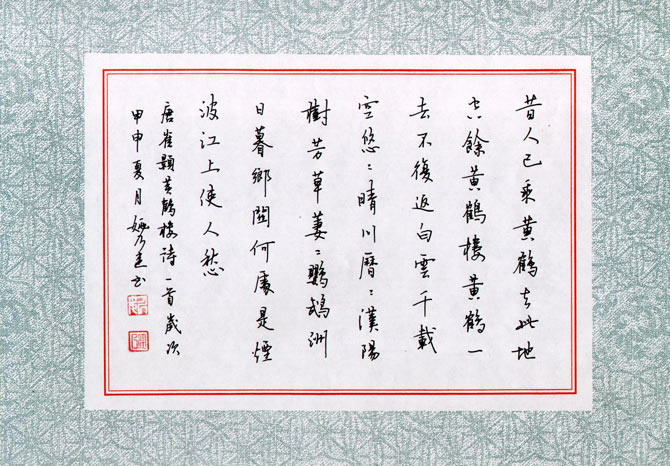 昔人已乘黄鶴去此地
空餘黄鶴樓黄鶴一
去不復返白雲千載
空悠〻晴川曆〻漢陽
樹芳草萋〻鸚鵡洲
日暮鄉關何處是煙
波江上使人愁
唐崔顥黄鶴樓诗一首歲次
甲申夏月书